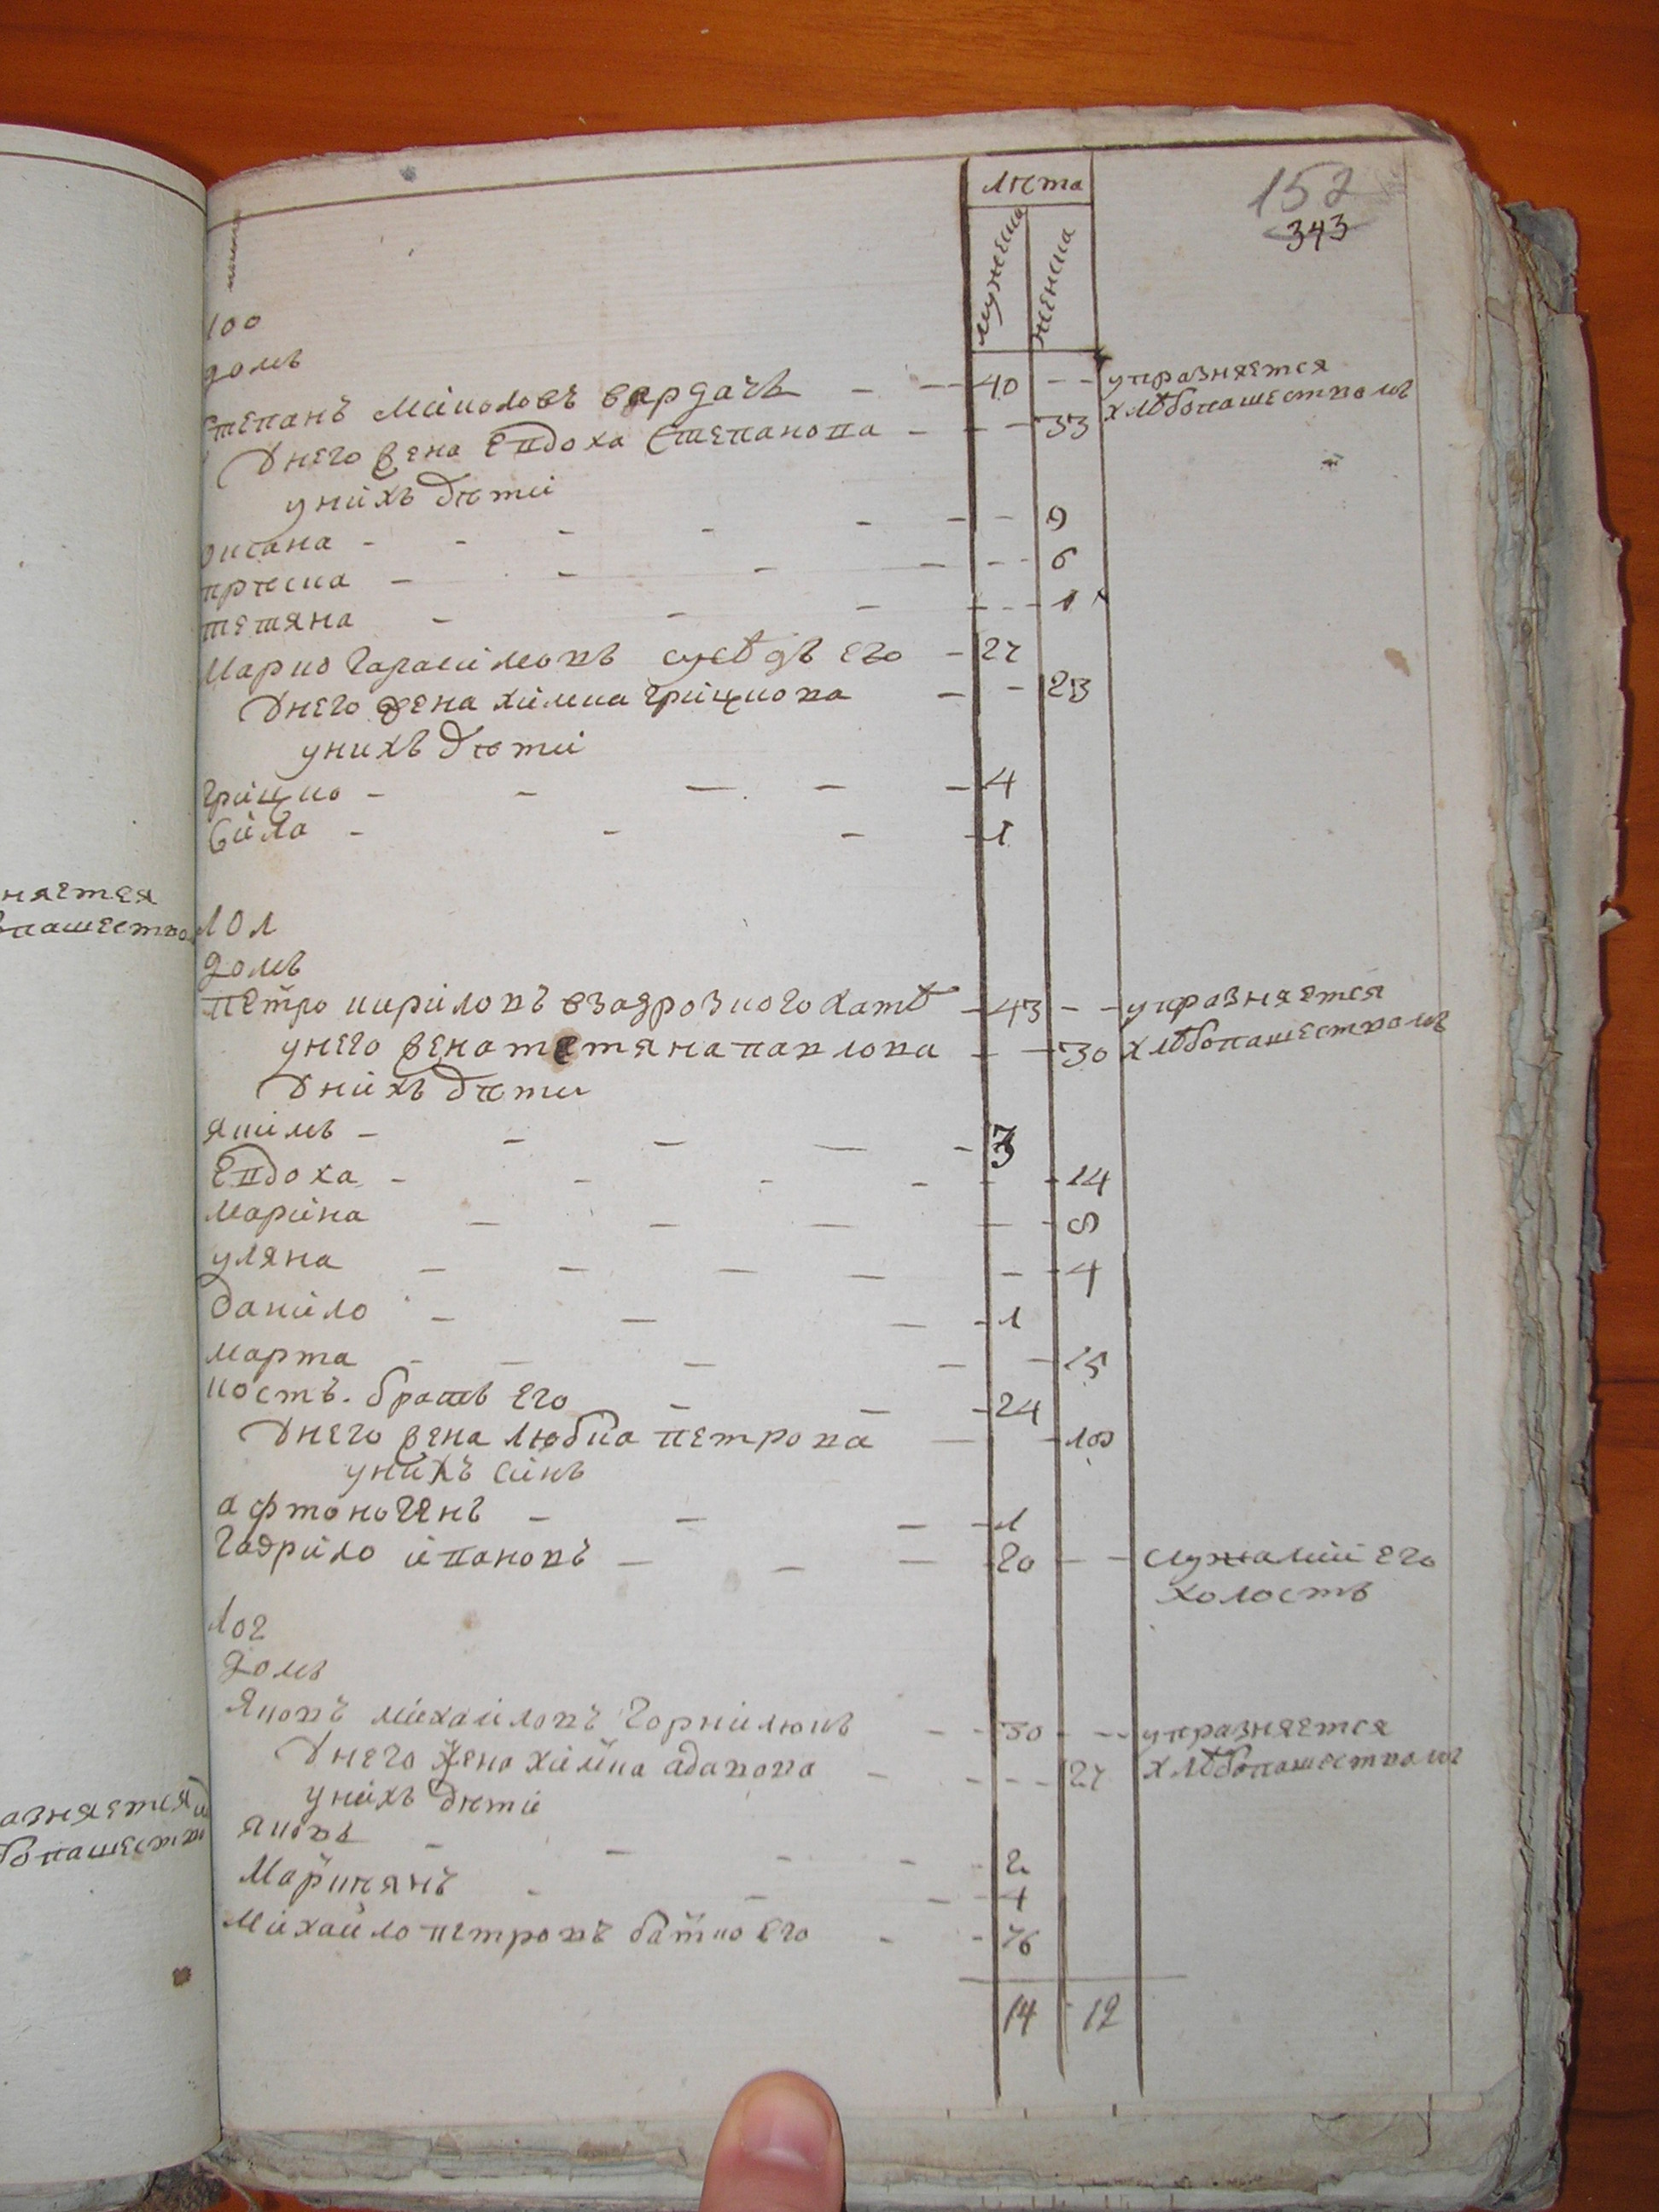 лѣта
мужеска
женска
152
343
100
домъ
Степанъ Мико­ловъ 40 упразняется
хлѣбопашествомъ
Унего жена Евдоха Степанова 33
унихъ дѣти
Оксана 9
Прѣска 6
Тетяна 1
Марко Гарасимовъ сусѣдъ его 27
Унего жена Химка Грицкова 23
унихъ дѣти
Грицко 4
Сила 1
101
домъ
Петро Кириловъ 43 упразняется
унего жена Тетяна Павлова 30 хлѣбопашествомъ
Унихъ дѣти
Якимъ
Евдоха 14
Марина 8
Уляна 4
Данило 1
Марта 15
Кость. братъ его 24
Унего жена Любка Петрова
унихъ синъ
Афтоноген­ъ 1
Гаврило Ивановъ 20 служащій его
холостъ
102
домъ
Яковъ Михаиловъ Корнилюкъ 30 упразняется
Унего жена Химка Адамова 27 хлѣбопашествомъ
унихъ дѣти
Яковъ 2
Маркиянъ 4
Михайло Петровъ батко его 76
14 12
няется
пашество
азняется
бопашество